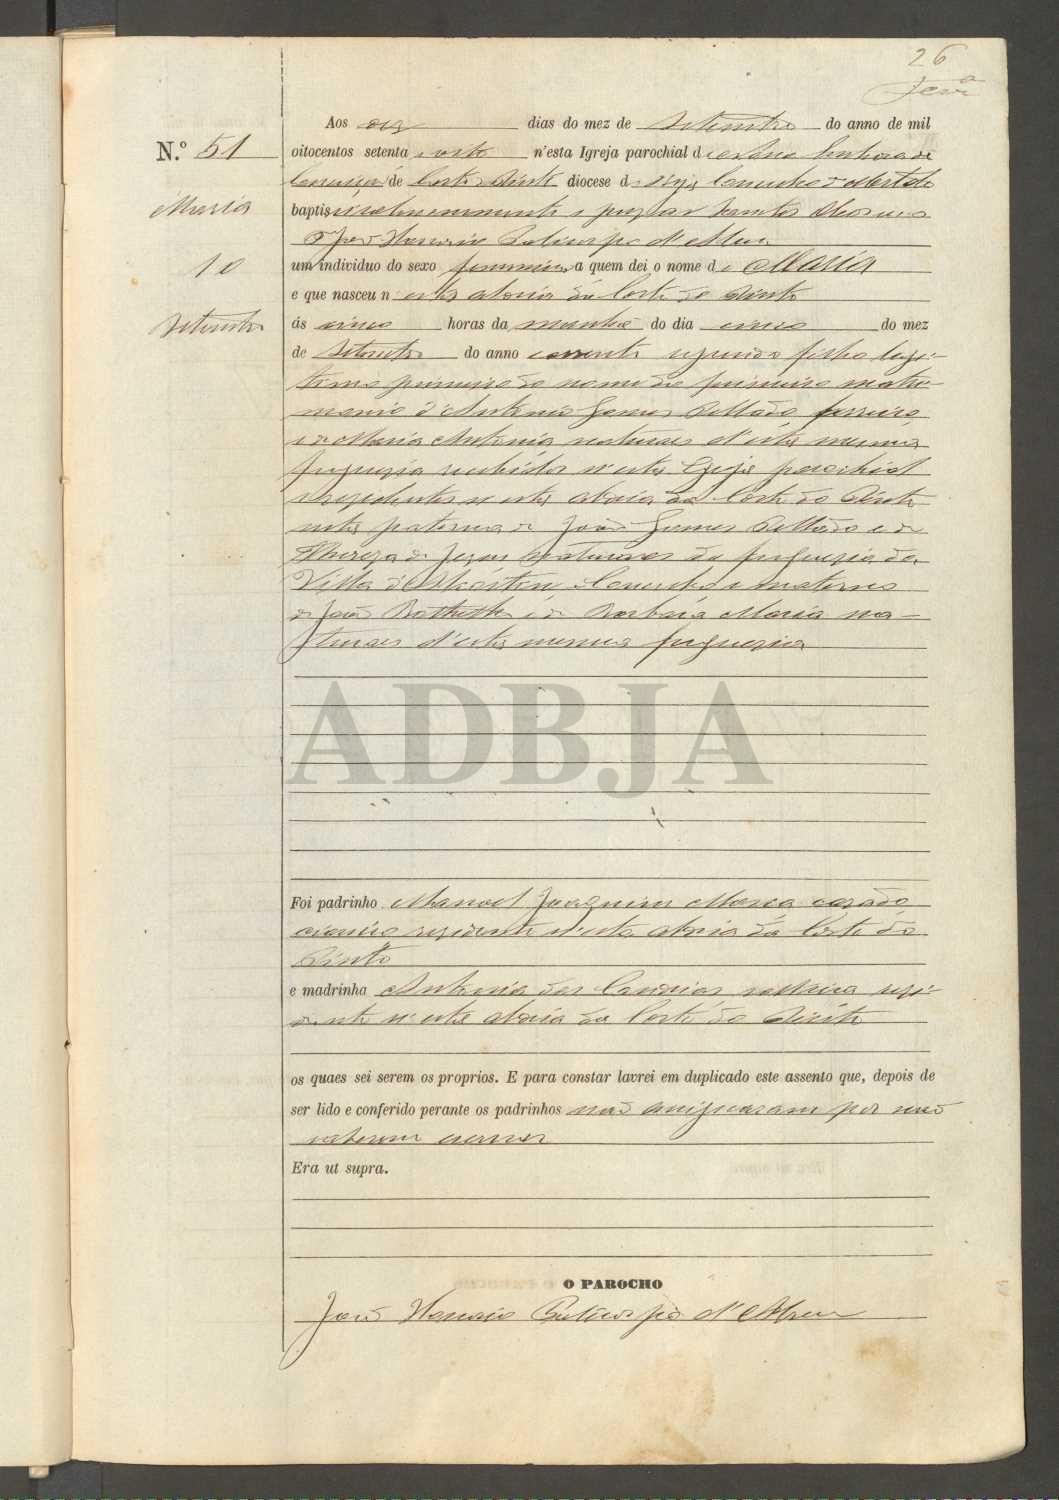 26
N.º 51
Maria
10
Setembro
Aos dez dias do mez de Setembro do anno de mil
oitocentos setenta e oito n'esta Igreja parochial de Nossa Senhora da
Conceição de Corte do Pinto diocese de Beja Concelho de Mertola
baptisei solemnemente e puz os Santos Oleos eu o
João Honorio Policarpo d'Abreu
um individuo do sexo femenino a quem dei o nome de Maria
e que nasceu n'esta aldeia da Corte do Pinto
ás cinco horas da manhã do dia cinco do mez
de Setembro do anno corrente segunda filha legi-
tima primeira do nome do primeiro matri-
monio d'Antonio Gomes Palhão ferreiro
e de Maria Antonia naturaes d'esta mesma
freguezia recebidos n'esta Egreja parochial
e rezidentes n'esta aldeia da Corte do Pinto
neta paterna de João Gomes Palhão e de
Thereza de Jezus naturaes da freguezia da
Villa de Concelho e materna
de João e de Barbara Maria na-
turaes d'esta mesma freguezia
ADBJA
Foi padrinho Manoel Joaquim casado
rezidente n'esta aldeia da Corte do
Pinto
e madrinha Antonia das Candeias solteira rezi-
dente n'esta aldeia da Corte do Pinto
os quaes sei serem os proprios. E para constar lavrei em duplicado este assento que, depois de
ser lido e conferido perante os padrinhos não assignaram por não
saberem escrever
Era ut supra.
O PAROCHO
João Honorio Policarpo d'Abreu